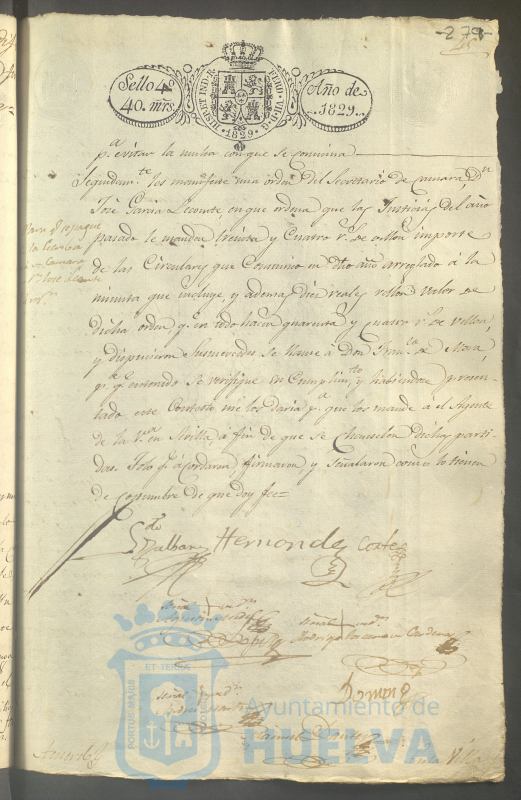 -279-
Sello 4º
40. mrs.
HISP. ET IND. R.
FERD. VII. D. G.
1829
Año de
1829.
pª evitar la multa con que se commina
Seguidam.te les manifesté una orden del Secretario de Camara, Dn
José Garcia Lecomte en que ordena que las Justicias del año
pasado le mandan treinta y Cuatro r.s de vellon importe
de las Circulares que Comunico en dho año arreglado á la
minuta que incluye, y ademas diez reales vellon valor de
dicha orden q.e en todo hacen quarenta y Cuatro r.s de vellon,
y dispusieron Susmercedes se llame á Don Fran.co de Mora
p.ª q.e enterado se verifique su Cumplim.to y habiendose presen-
tado este Contesto me los daria p.ª que los mande á el Agente
de la V.ª en Sevilla á fin de que se Chanselen dichas parti-
das. Todo q.e acordaron, firmaron, y Señalaron como lo tienen
de costumbre de que doy fee=
Hernandez Corte
señal
señal
Rodrigo Cardenas
señal
Domong
Manuel
PORTUS MARIS
ET TERRÆ
CUSTODIA
Ayuntamiento de
HUELVA
Acuerdo